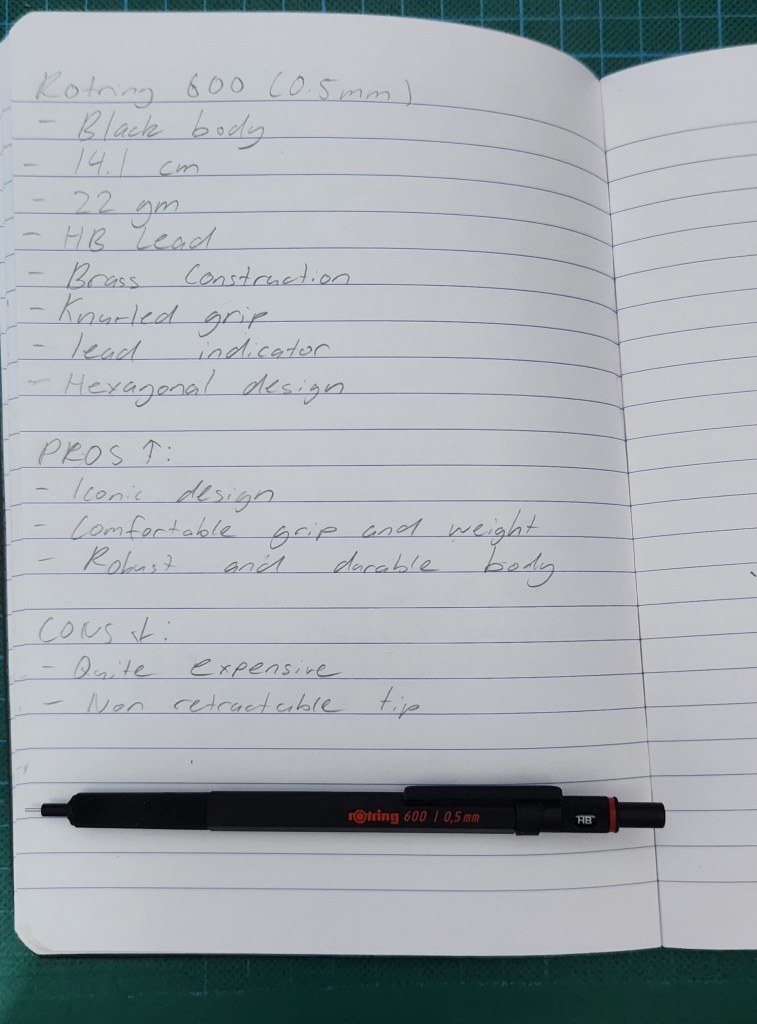 Rotring 600 (0.5mm)
- Black body
- 14.1 cm
- 22 gm
- HB Lead
- Brass Construction
- Knurled grip
- lead indicator
- Hexagonal design
PROS ↑:
- Iconic design
- Comfortable grip and weight
- Robust and durable body
CONS ↓:
- Quite expensive
- Non retractable tip
rotring 600 | 0,5 mm
HB